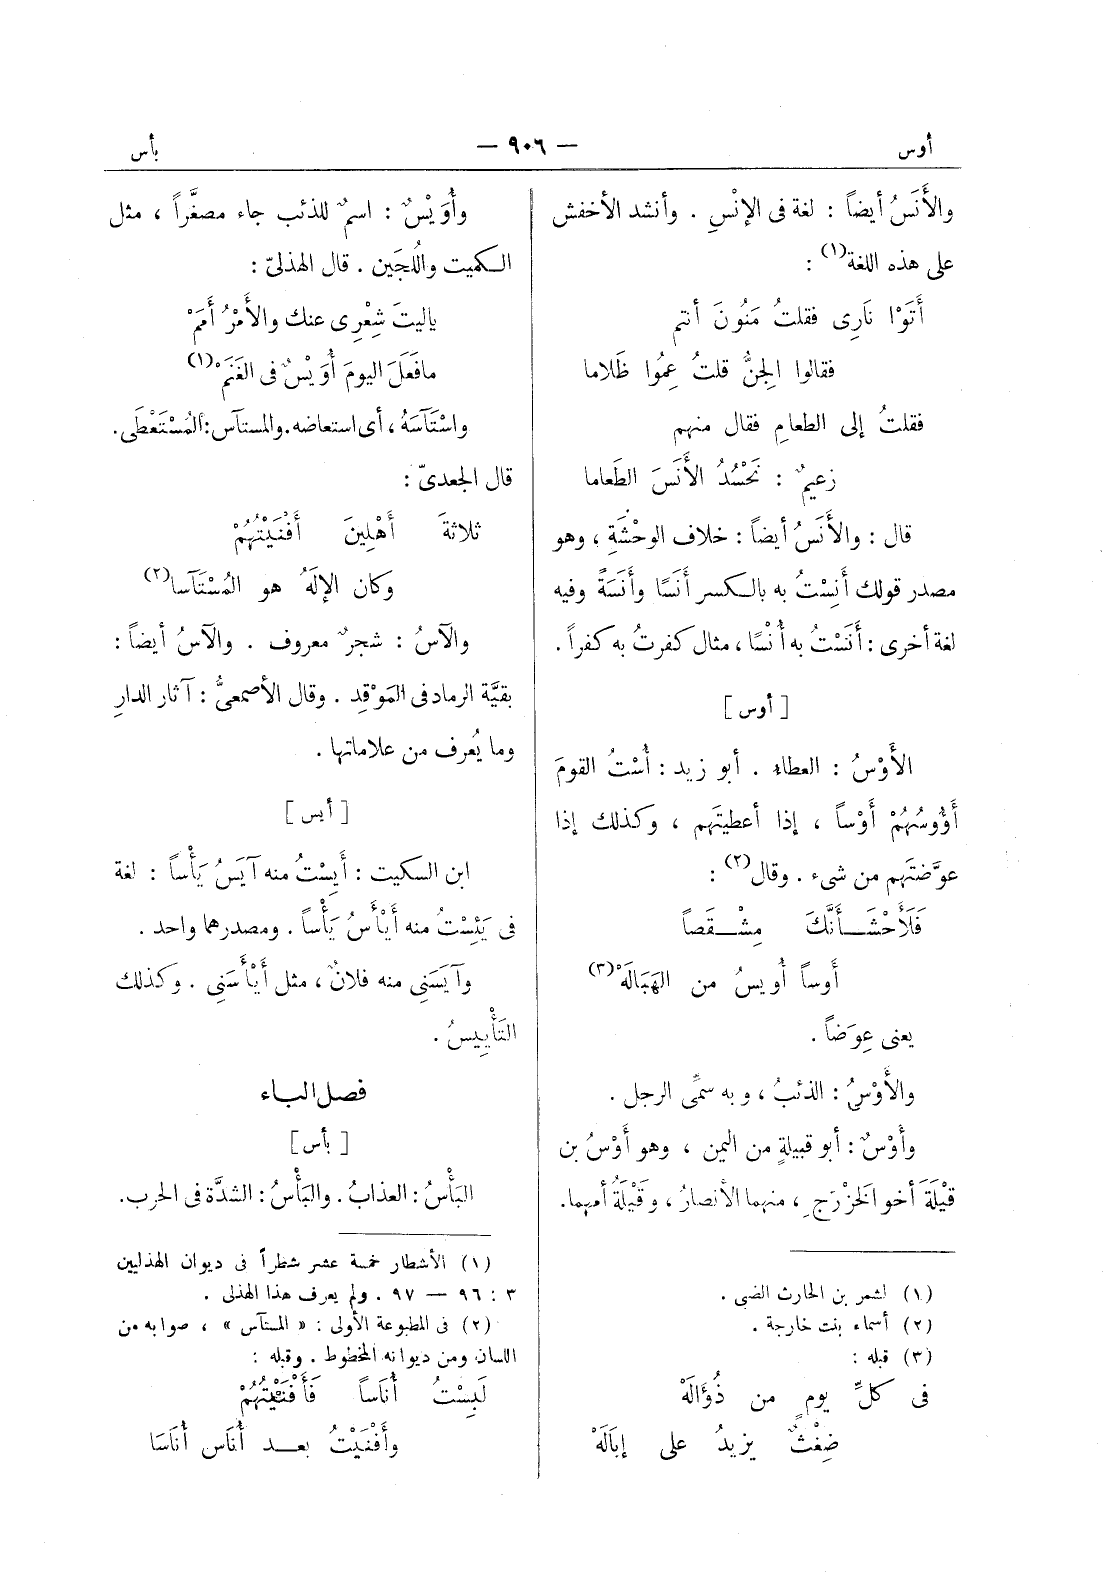 أوس — ٩٠٦ — بأس
والأَنَسُ أيضاً : لغة فى الإنْسِ . وأنشد الأخفش
على هذه اللغة(١) :
أَتَوْا نَارِى فقلتُ مَنُونَ أنتم
فقالوا الجِنُّ قلتُ عِمُوا ظَلاما
فقلتُ إلى الطعامِ فقال منهم
زعيمٌ : نَحْسُدُ الأَنَسَ الطَعاما
قال : والأَنَسُ أيضاً : خلاف الوحْشَةِ ، وهو
مصدر قولك أَنِسْتُ به بالكسر أَنَسًا وأَنَسَةً وفيه
لغة أخرى : أَنَسْتُ به أُنْسًا ، مثال كفرتُ به كفراً .
[ أوس ]
الأَوْسُ : العطاء . أبو زيد : أُسْتُ القومَ
أَؤُوسُهُمْ أَوْساً ، إذا أعطيتَهم ، وكذلك إذا
عوَّضتَهم من شىء . وقال(٢) :
فَلَأَحْشَأَنَّكَ مِشْقَصاً
أَوساً أُويسُ من الهَبَالَهْ(٣)
يعنى عِوَضاً .
والأَوْسُ : الذئبُ ، وبه سمِّى الرجل .
وأَوْسٌ : أبو قبيلةٍ من اليمن ، وهو أَوْسُ بن
قَيْلَةَ أخو الخَزْرَجِ ، منهما الأنصارُ ، وقَيْلَةُ أمهما.
(١) لشمر بن الحارث الضبى .
(٢) أسماء بنت خارجة .
(٣) قبله :
فى كلِّ يومٍ من ذُؤَالَهْ
ضِغْثٌ يزيدُ على إبَالَهْ
وأُوَيْسٌ : اسمٌ للذئب جاء مصغَّراً ، مثل
الكميت واللُجَين . قال الهذلىّ :
ياليتَ شِعْرِى عنك والأَمْرُ أَمَمْ
مافَعَلَ اليومَ أُوَيْسٌ فى الغَنَمْ(١)
واسْتَآسَهُ ، أى استعاضه. والمستآس: المُسْتَعْطَى.
قال الجعدىّ :
ثلاثةَ أَهْلِينَ أَفْنَيْتُهُمْ
وكان الإلَهُ هو المُسْتَآسا(٢)
والآسُ : شجرٌ معروف . والآسُ أيضاً :
بقيَّة الرمادفى المَوْقِد . وقال الأصمعىُّ : آثار الدارِ
وما يُعرف من علاماتها .
[ أيس ]
ابن السكيت : أَيِسْتُ منه آيَسُ يَأْساً : لغة
فى يَئِسْتُ منه أَيْأَسُ يَأْساً . ومصدرهما واحد .
وآيَسَنِى منه فلانٌ ، مثل أَيْأَسَنِى . وكذلك
التَأْيِيسُ .
فصل الباء
[ بأس ]
البَأْسُ : العذابُ . والبَأْسُ : الشدَّة فى الحرب.
(١) الأشطار خمسة عشر شطراً فى ديوان الهذليين
٣ : ٩٦ — ٩٧ . ولم يعرف هذا الهذلى .
(٢) فى المطبوعة الأولى : « المستآس » ، صوابه من
اللسان ومن ديوانه المخطوط . وقبله :
لَبِسْتُ أُنَاساً فَأَفْنَيْتُهُمْ
وأَفْنَيْتُ بعد أُنَاس أُنَاسَا